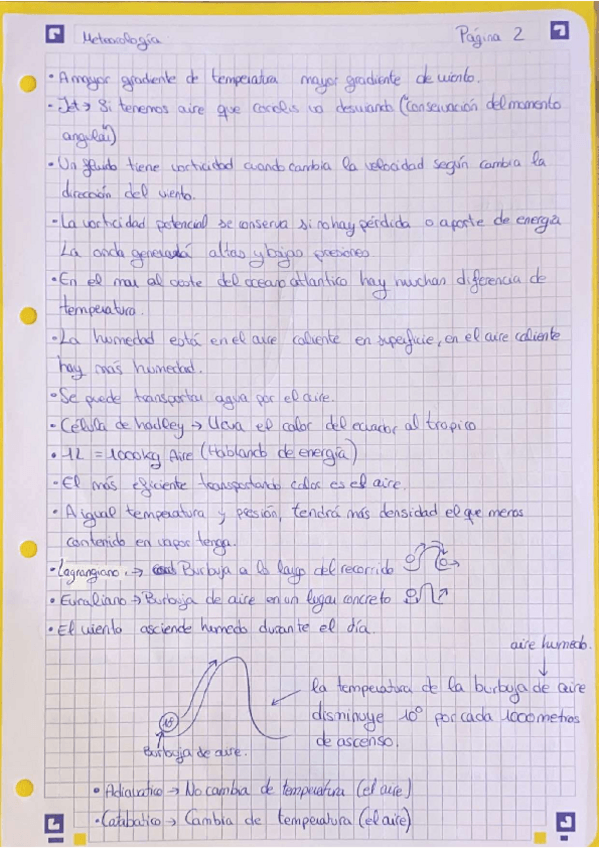 Meteorología
Página 2
• A mayor gradiente de temperatura mayor gradiente de viento.
• Jet → Si tenemos aire que coriolis va desviando ("conservación del momento
angular")
• Un fluido tiene vorticidad cuando cambia la velocidad según cambia la
dirección del viento.
• La vorticidad potencial se conserva si no hay pérdida o aporte de energía
La onda generará altas y bajas presiones
• En el mar al oeste del oceano atlantico hay muchan diferencia de
temperatura.
• La humedad está en el aire caliente en superficie, en el aire caliente
hay más humedad.
• Se puede transportar agua por el aire.
• Célula de hadley → lleva el calor del ecuador al tropico
• 1L = 1000kg Aire (Hablando de energía)
• El más eficiente transportando calor es el aire.
• A igual temperatura y presión, tendrá más densidad el que menos
contenido en vapor tenga.
• Lagrangiano → Burbuja a lo largo del recorrido
• Euraliano → Burbuja de aire en un lugar concreto
• El viento asciende humedo durante el día.
aire humedo.
la temperatura de la burbuja de aire
disminuye 10° por cada 1000 metros
de ascenso.
Burbuja de aire.
• Adiavatico → No cambia de temperatura (el aire)
• Catabatico → Cambia de temperatura (el aire)